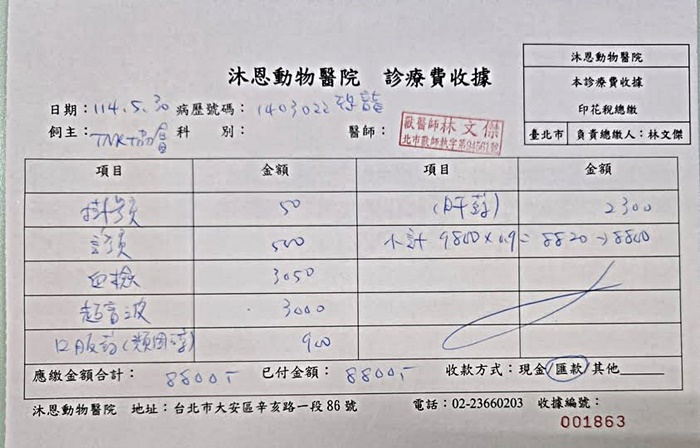 沐恩動物醫院 診療費收據
沐恩動物醫院
本診療費收據
印花稅總繳
臺北市 負責總繳人：林文傑
日期：114.5.30 病歷號碼：1403022
飼主：TNK協會 科 別： 醫師：獸醫師林文傑
項目 金額 項目 金額
掛號 50 (肝藥) 2300
診費 500 小計 9800×0.9=8820→8800
血檢 3050
超音波 3000
口服藥(類固醇) 900
應繳金額合計：8800.- 已付金額：8800.- 收款方式：現金/匯款/其他
沐恩動物醫院 地址：台北市大安區辛亥路一段86號 電話：02-23660203 收據編號：
001863